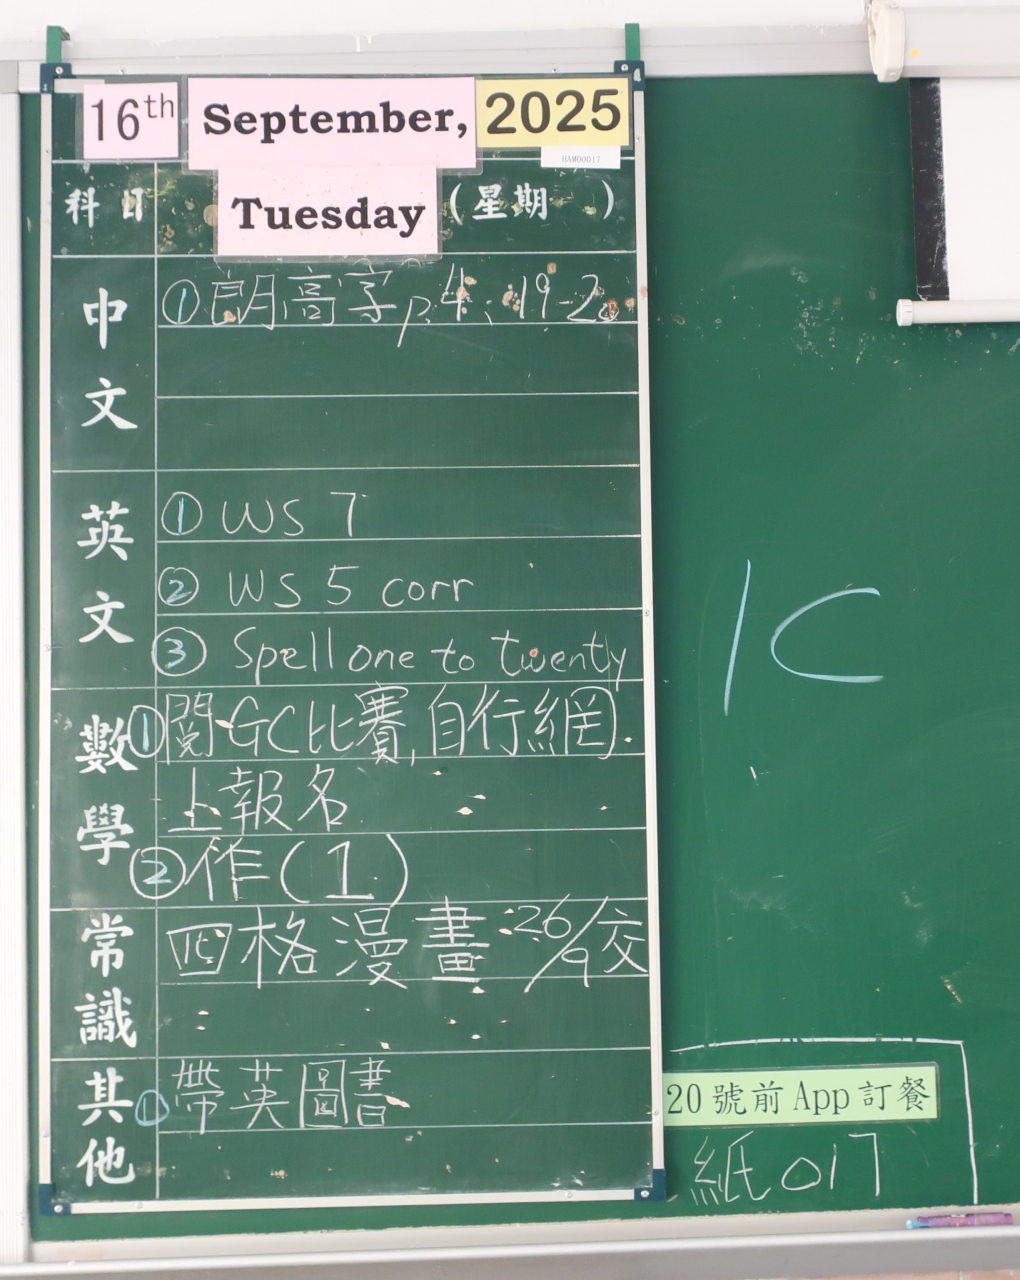 16th September, 2025
HAM00017
科目 Tuesday (星期 )
中文
① 朗高字 p.4, 19-20
英文
① WS 7
② WS 5 corr
③ Spell one to twenty
數學
① 閱GC比賽,自行網
上報名
② 作(1)
常識
四格漫畫 26/9交
其他
① 帶英圖書
1C
20號前App訂餐
紙017